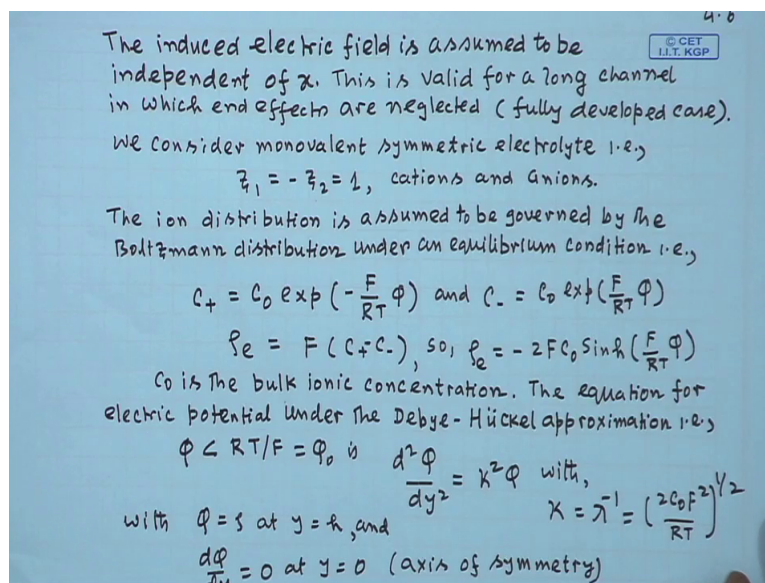 4.6
© CET
I.I.T. KGP
The induced electric field is assumed to be
independent of x. This is valid for a long channel
in which end effects are neglected (fully developed case).
We consider monovalent symmetric electrolyte i.e.,
z₁ = - z₂ = 1, cations and anions.
The ion distribution is assumed to be governed by the
Boltzmann distribution under an equilibrium condition i.e.,
C₊ = C₀ exp (- F/RT φ) and C₋ = C₀ exp (F/RT φ)
ρe = F (C₊-C₋), so, ρe = - 2FC₀ Sinh (F/RT φ)
C₀ is the bulk ionic concentration. The equation for
electric potential under the Debye-Hückel approximation i.e.,
φ < RT/F = φ₀ is d²φ/dy² = κ²φ with,
κ = λ⁻¹ = (2C₀F²/RT)^1/2
with φ = ζ at y = h, and
dφ/dy = 0 at y = 0 (axis of symmetry)